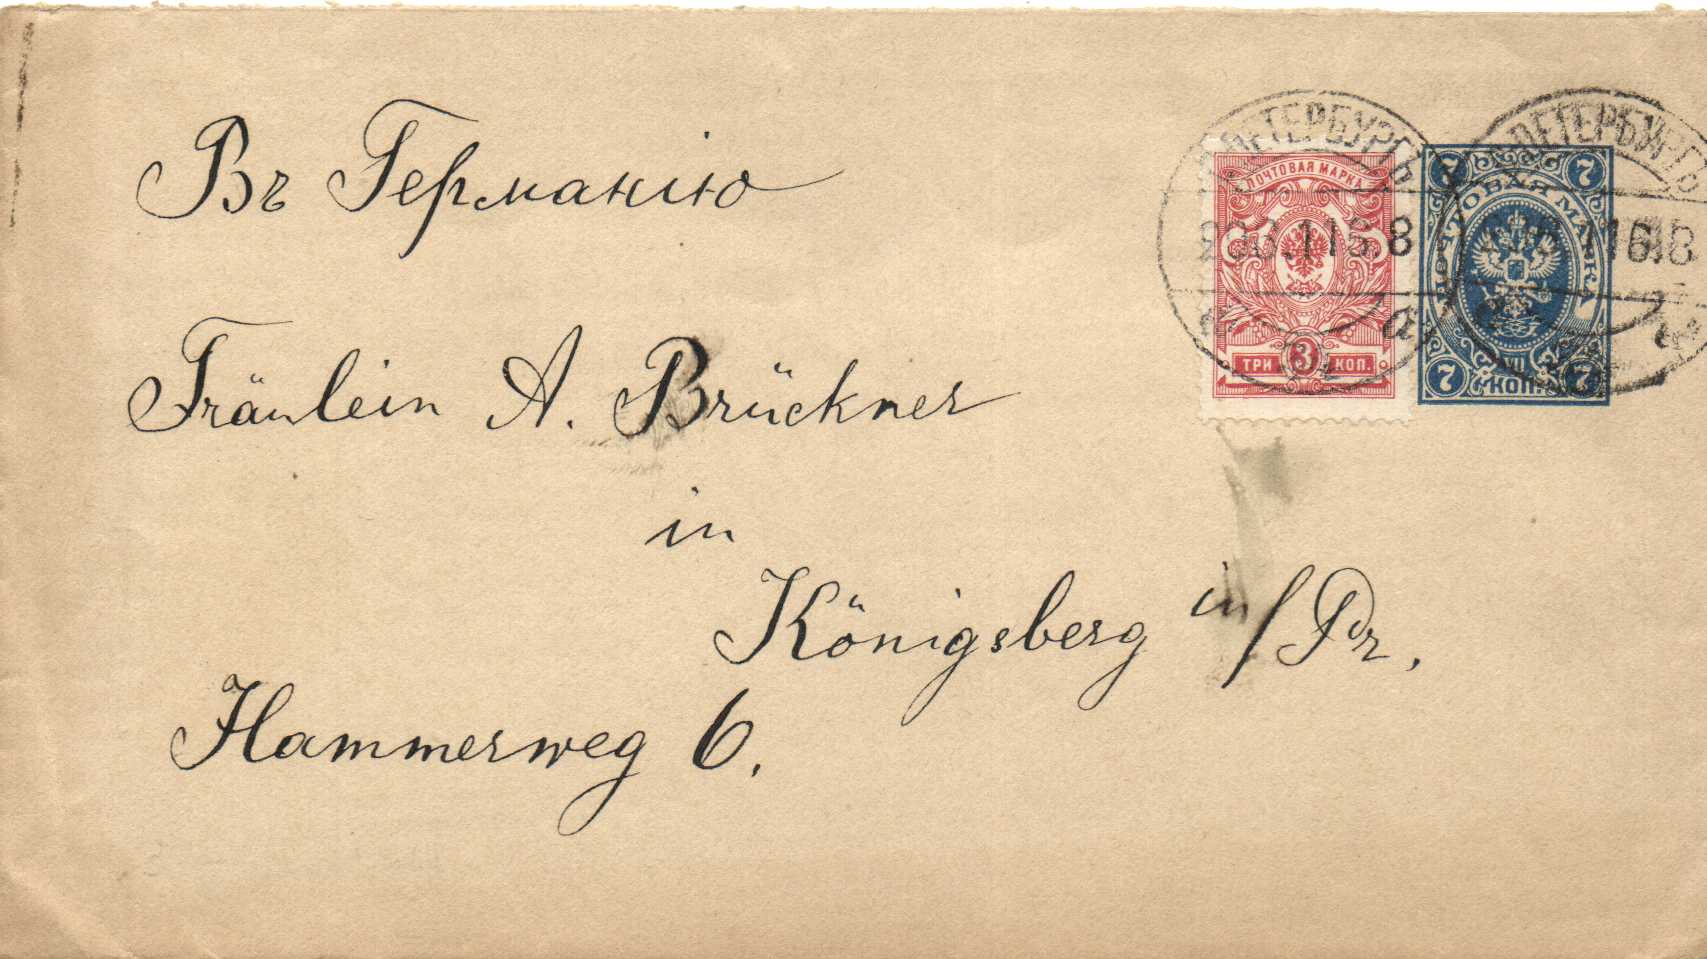 Въ Германію
Fräulein A. Brückner
in
Königsberg in/Pr.
Hammerweg 6.
ПЕТЕРБУРГЪ
ПОЧТОВАЯ МАРКА
ТРИ 3 КОП.
ПЕТЕРБУРГЪ
7 7
ПОЧТОВАЯ МАРКА
7 КОП. 7